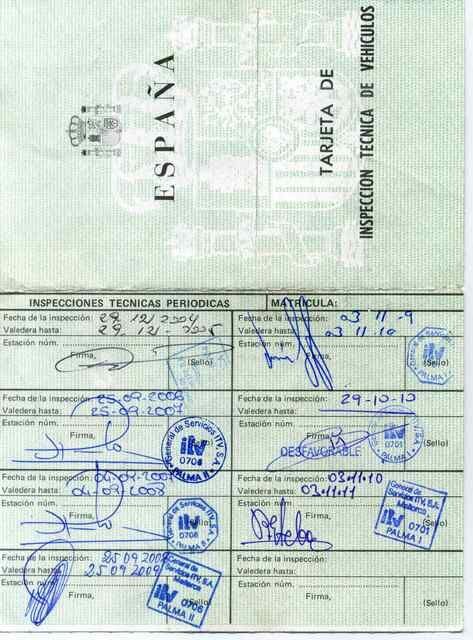 ESPAÑA
TARJETA DE
INSPECCION TECNICA DE VEHICULOS
INSPECCIONES TECNICAS PERIODICAS
MATRICULA:
Fecha de la inspección: 29 12/2004
Valedera hasta: 29 12/ 2005
Estación núm.
Firma,
(Sello)
Fecha de la inspección: 25-09-2006
Valedera hasta: 25-09-2007
Estación núm.
Firma,
General de Servicios ITV, S.A.
itv
0706
PALMA II
Fecha de la inspección: 04-09-2007
Valedera hasta: 04-09-2008
Estación núm.
Firma,
General de Servicios ITV, S.A.
itv
0706
PALMA II
Fecha de la inspección: 25 09 2008
Valedera hasta: 25 09 2009
Estación núm.
Firma,
General de
Servicios ITV, S.A.
Mallorca
itv 0706
PALMA II
(Sello)
Fecha de la inspección: 03 11 -9
Valedera hasta: 03 11 10
Estación núm.
Firma,
itv
PALMA
(Sello)
Fecha de la inspección: 29-10-10
Valedera hasta:
Estación núm.
Firma,
DESFAVORABLE
itv
0701
PALMA I
(Sello)
Fecha de la inspección: 03.11.10
Valedera hasta: 03.11.11
Estación núm.
Firma,
General de
Servicios ITV, S.A.
Mallorca
itv 0701
PALMA I
Fecha de la inspección:
Valedera hasta:
Estación núm.
Firma,
(Sello)